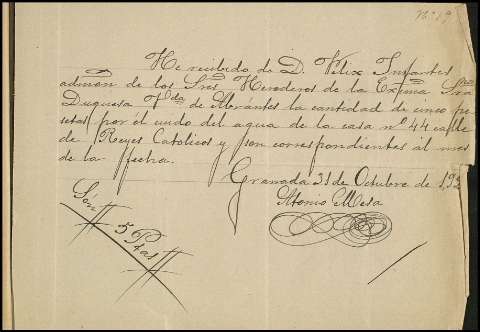 nº 19
He recibido de D. Félix Infantes
admon de los Sres Herederos de la Exma Sra
Duquesa Vda de Abrantes la cantidad de cinco pe
setas por el cuido del agua de la casa nº 44 calle
de Reyes Catolicos y son correspondientes al mes
de la fecha.
Granada 31 de Octubre de 192
Antonio Mesa
Son
5 Ptas